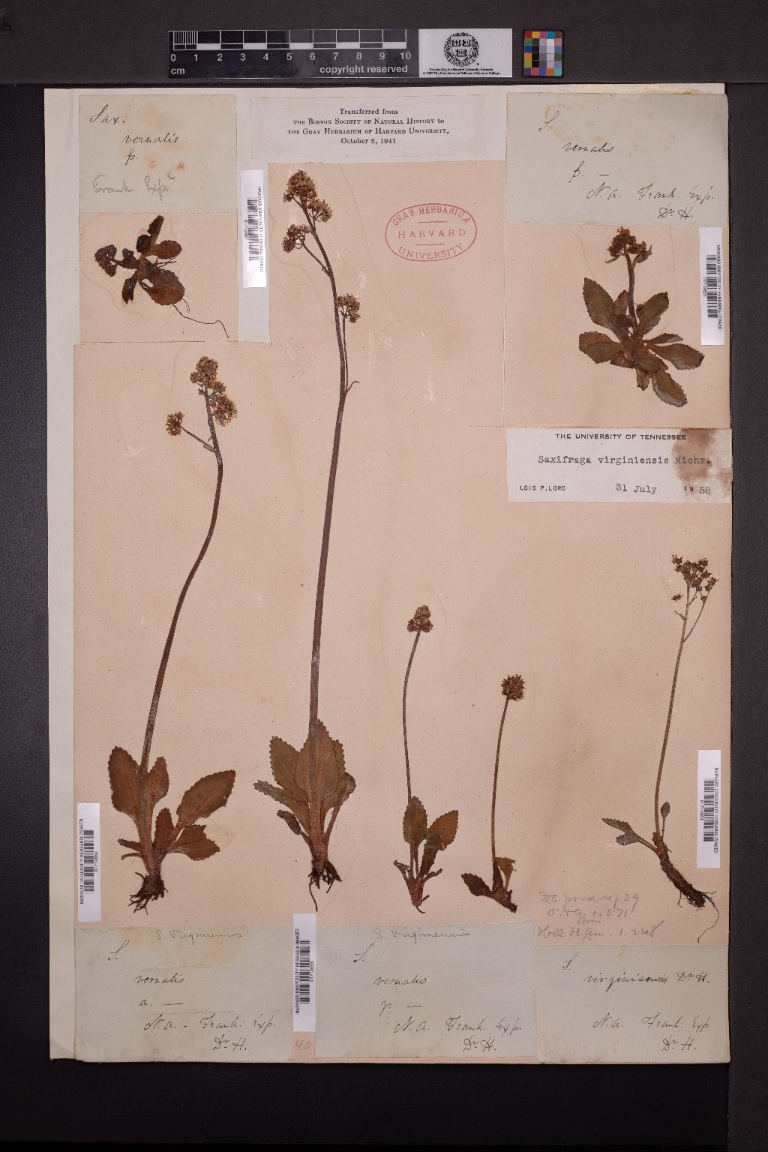 0 1 2 3 4 5 6 7 8 9 10
cm copyright reserved
Sax.
vernalis
β.
Frank. Exp.
Transferred from
THE BOSTON SOCIETY OF NATURAL HISTORY to
THE GRAY HERBARIUM OF HARVARD UNIVERSITY,
October 2, 1941
S.
vernalis
β. —
N.a. Frank. Exp.
Dr. H.
GRAY HERBARIUM
HARVARD
UNIVERSITY
THE UNIVERSITY OF TENNESSEE
Saxifraga virginiensis Michx.
LOIS P. LORD 31 July 1958
S. Virginiensis
S.
vernalis
a. —
N.a. - Frank. Exp.
Dr. H.
40
S. Virginiensis
S.
vernalis
γ —
N.a. Frank. Exp.
Dr. H.
S.
virginiensis Dr. H.
N.a. Frank. Exp.
Dr. H.